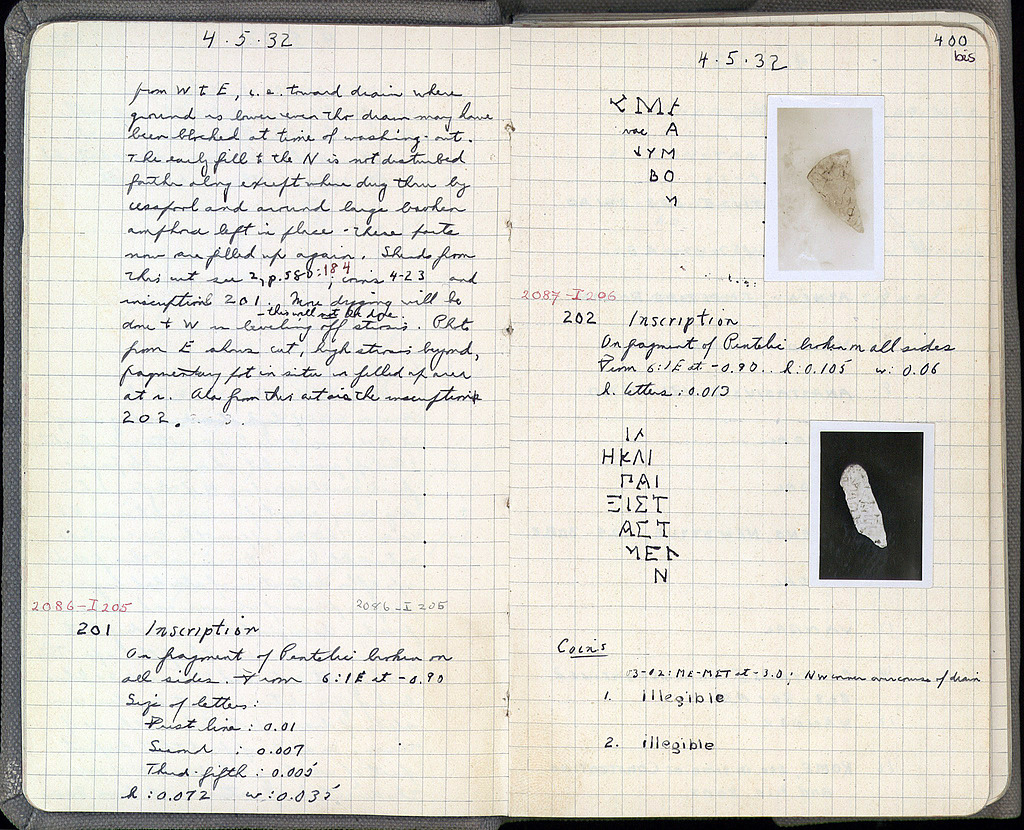 4·5·32
from W to E, i.e. toward drain where
ground is lower even tho drain may have
been blocked at time of washing-out.
The early fill to the N is not disturbed
farther along except where dug thru by
cesspool and around large broken
amphora left in place - these parts
now are filled up again. Sherds from
this cut see 2, p.580:184; coins 4-23 and
inscription 201. More digging will be
- this will not be done.
done to W in leveling off strosis. Photo
from E shows cut, high strosis beyond,
fragmentary pot in situ in filled up area
at r. Also from this cut is the inscription
202.
2086-I 205
2086-I 205
201 Inscription
On fragment of Pentelic broken on
all sides. From 6:1E at -0.90
Size of letters:
First line: 0.01
Second : 0.007
Third-fifth: 0.005
h:0.072 w:0.035
400
bis
4·5·32
ΜΑ
vac Α
ΥΜ
ΒΟ
2087-I 206
202 Inscription
On fragment of Pentelic broken on all sides
From 6:1E at -0.90.. h:0.105 w: 0.06
h. letters: 0.013
ΗΚΛΙ
ΠΑΙ
ΞΙΣΤ
ΑΣΤ
ΜΕΝ
Ν
Coins
03-02: ME-MET at -3.0; NW corner over course of drain
1. illegible
2. illegible